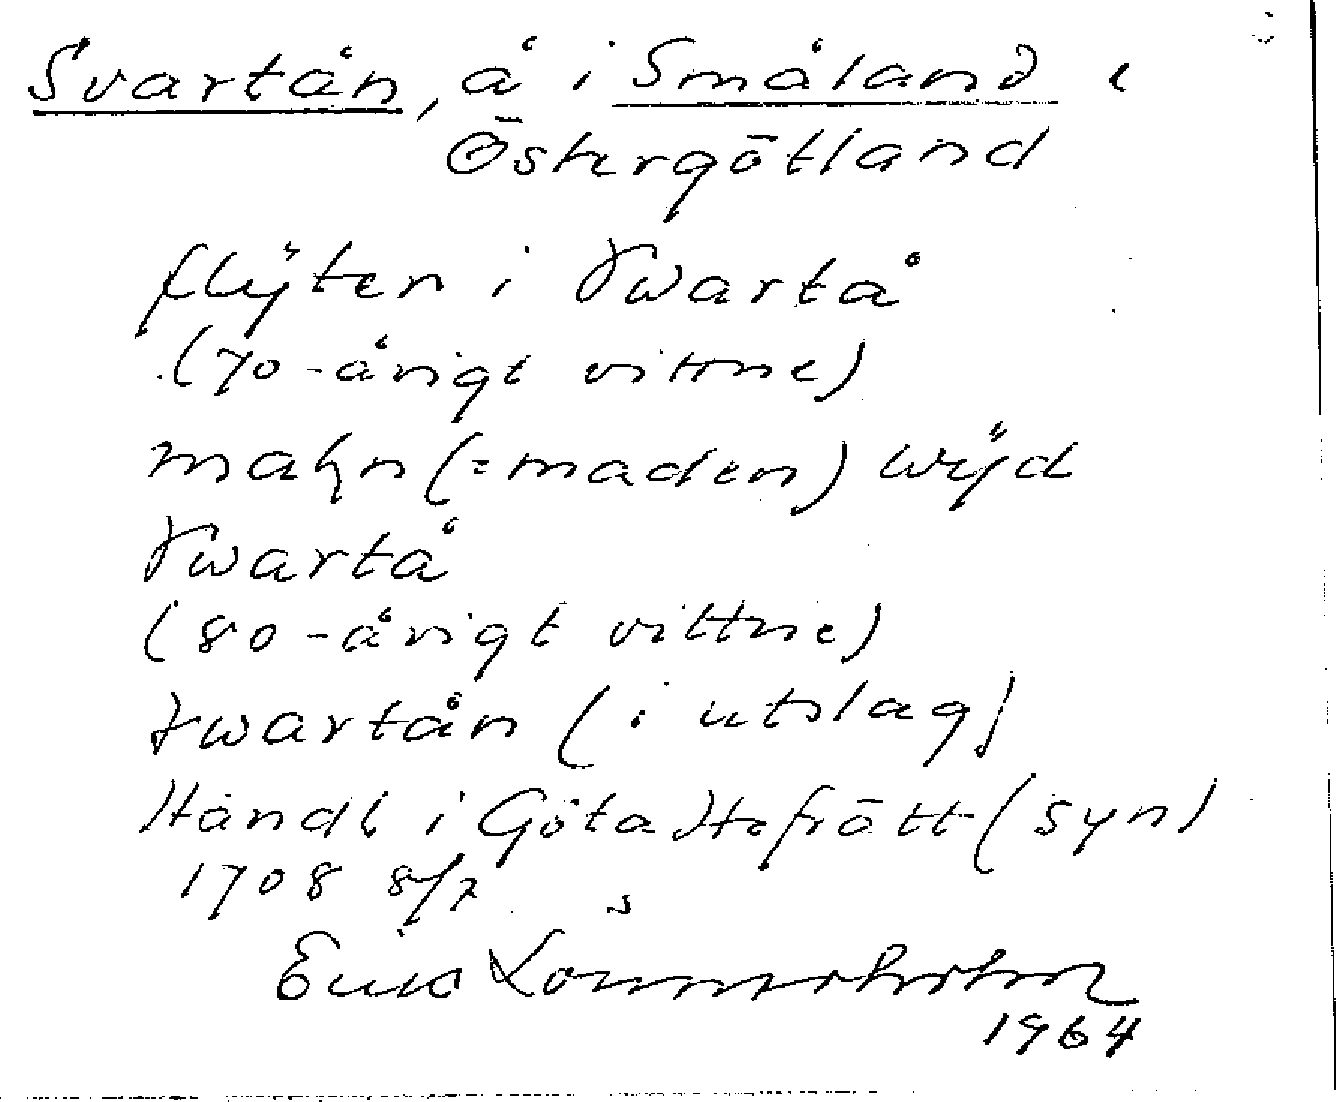 Svartån, å i Småland o
Östergötland
flÿten i Swartå
(70-årigt vittne)
mahn (=maden) wÿd
Swartå
(80-årigt vittne)
swartån (i utslag)
Handl i Göta Hofrätt (syn)
1708 8/7
1964